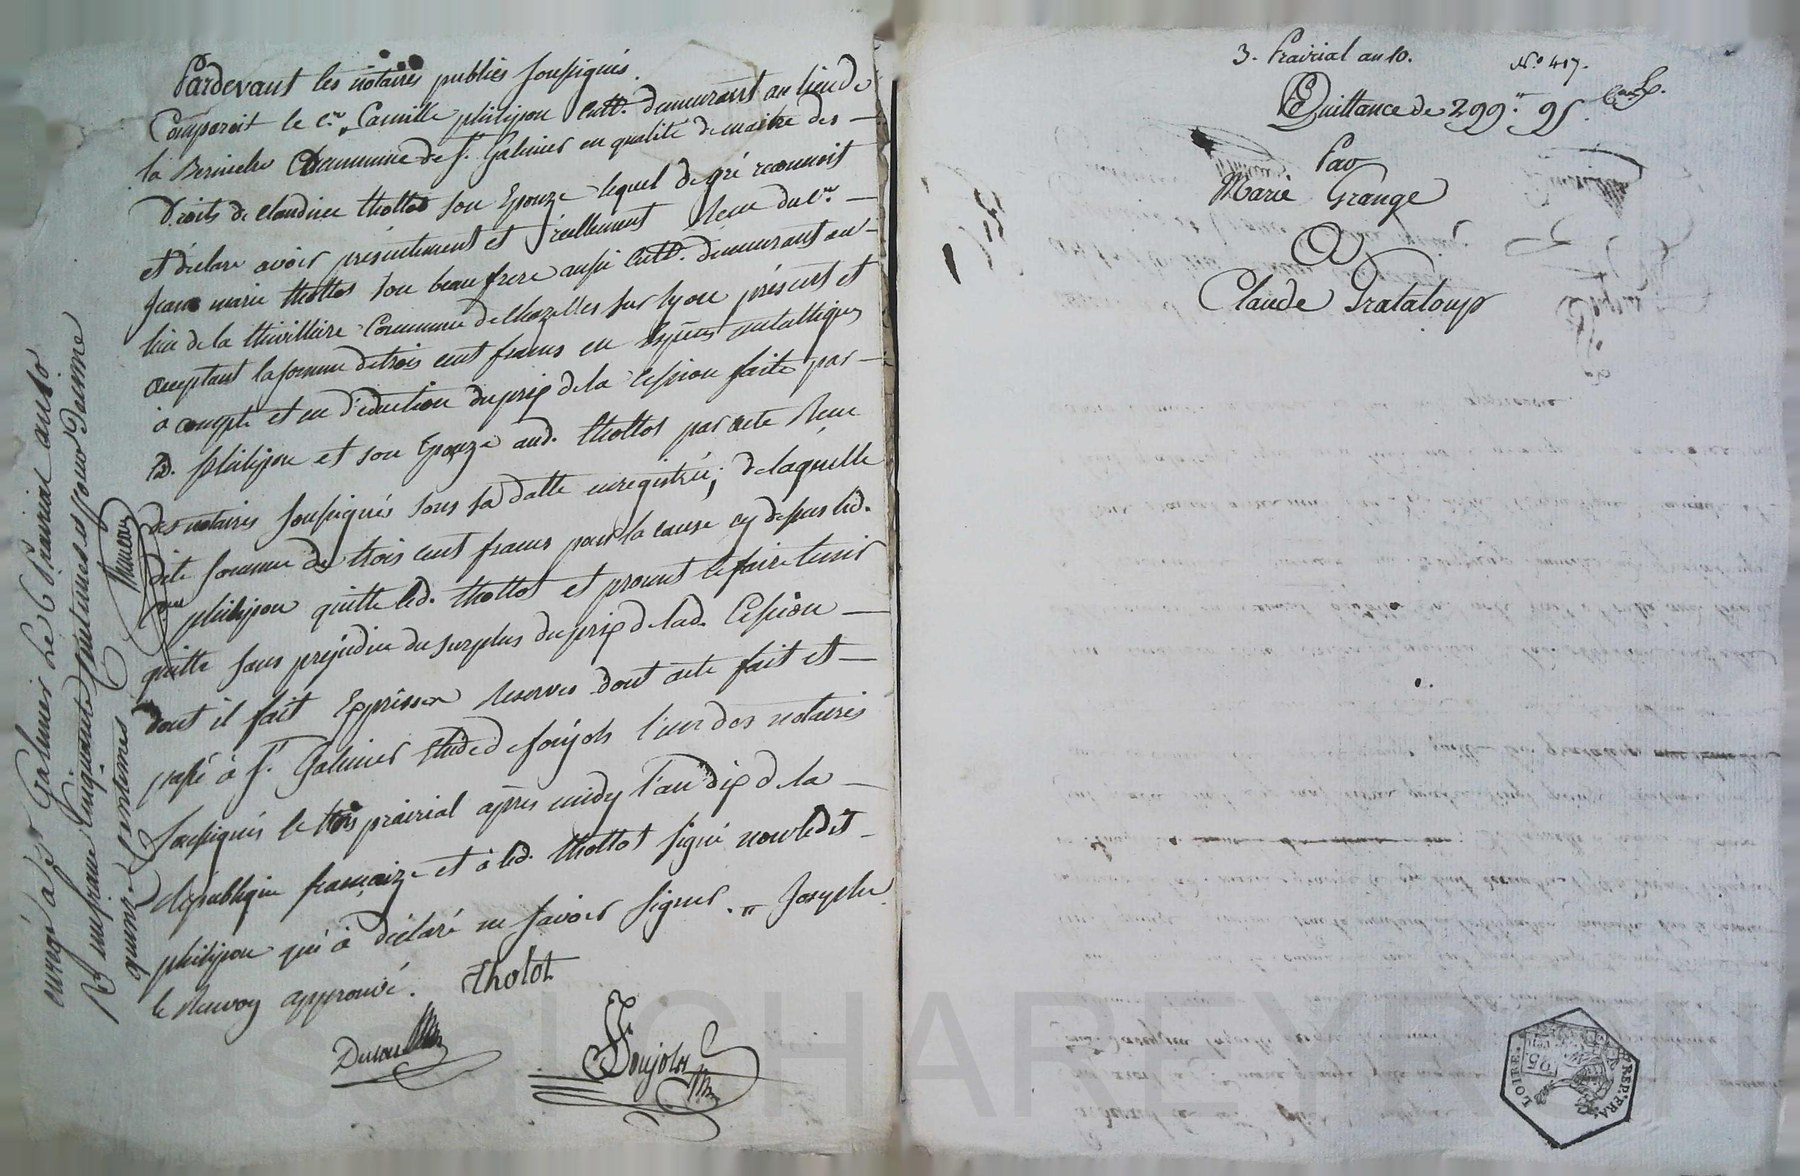 Pardevant les notaires publics soussignés.
Comparoit le c.en Camille philipon cult. demeurant au lieu de
la Commune de s.t Galmier en qualité de maitre des
Droits de Claudine thollot son Epouze lequel de gré reconnoit
et déclare avoir présentement et réellement Recu du c.en
Jean marie thollot son beau frere aussi cult. demeurant au
lieu de la thivilliere Commune de Chazelles sur lyon présent et
acceptant la somme de trois cent francs en Espèces metalliques
à compte et en déduction du prix de la Cession faite par
led. philipon et son Epouze aud. thollot par acte Recu
des notaires soussignés sous sa datte enregistrée; de laquelle
dite somme de trois cent francs pour la cause cy dessus led.
c.en philipon quitte led. thollot et promet le faire tenir
quitte sans prejudice du surplus du prix de lad. Cession
dont il fait Expresses Reserves dont acte fait et
passé à s.t Galmier Etude de foujols l'un des notaires
soussignés le trois prairial apres midy l'an dix de la
République françaize et à led. thollot signé non ledit
philipon qui à déclaré ne savoir signer. Josephe
le Renvoy approuvé. tholot
Foujols
enregé à s.t Galmier le 6 Prairial an 10
R un franc Cinquante Centimes et pour Daxime
quinze Centimes
3. Prairial an 10. N.o 417.
Quittance de 299.# 95
Par
Marie Grange
A
Claude Grataloup
LOIRE.
REP. FRA
25.
saal CHAREYRON